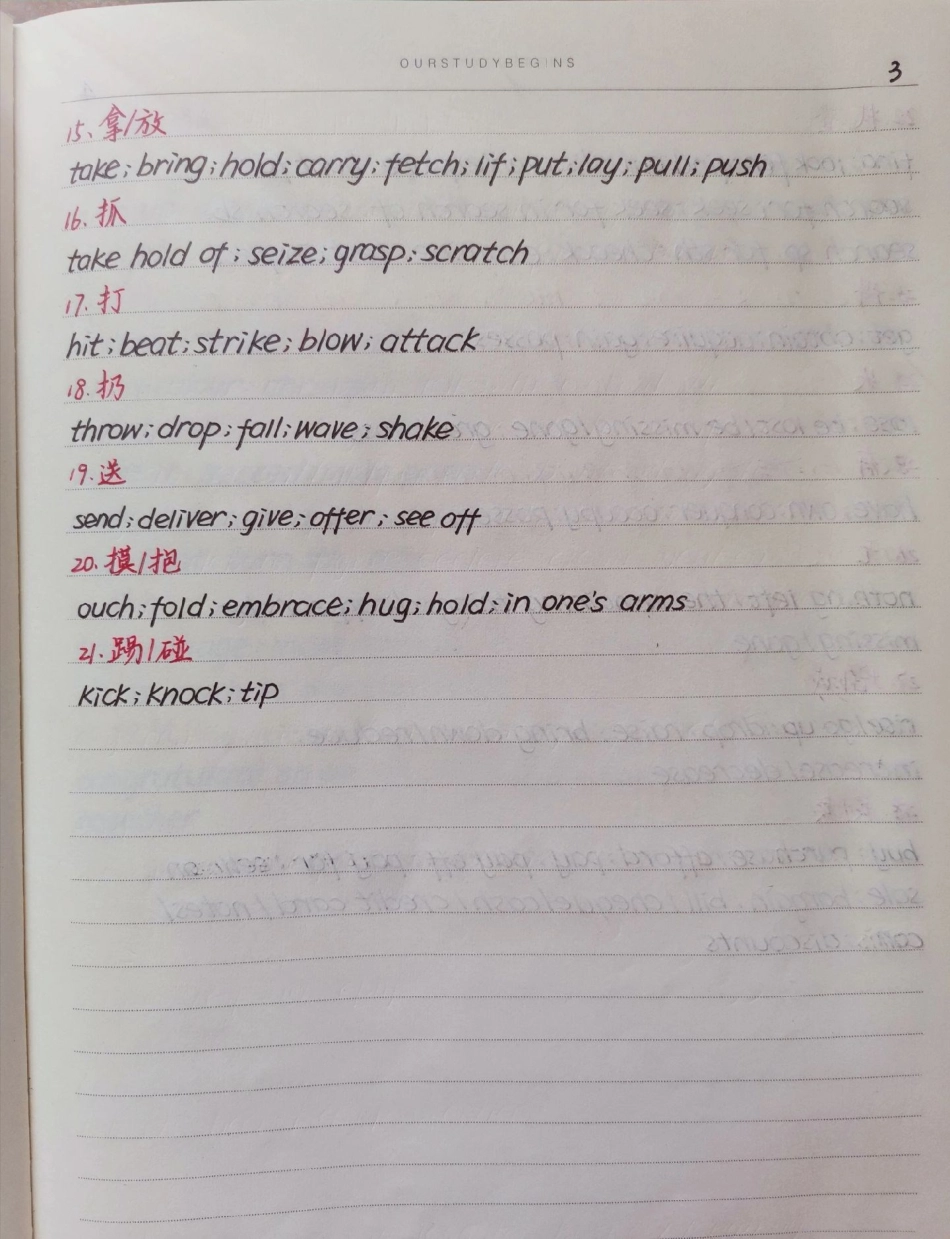 OURSTUDYBEGINS
3
15、拿/放
take; bring; hold; carry; fetch; lif; put; lay; pull; push
16. 抓
take hold of; seize; grasp; scratch
17. 打
hit; beat; strike; blow; attack
18. 扔
throw; drop; fall; wave; shake
19. 送
send; deliver; give; offer; see off
20. 摸/抱
ouch; fold; embrace; hug; hold; in one's arms
21. 踢/碰
kick; knock; tip